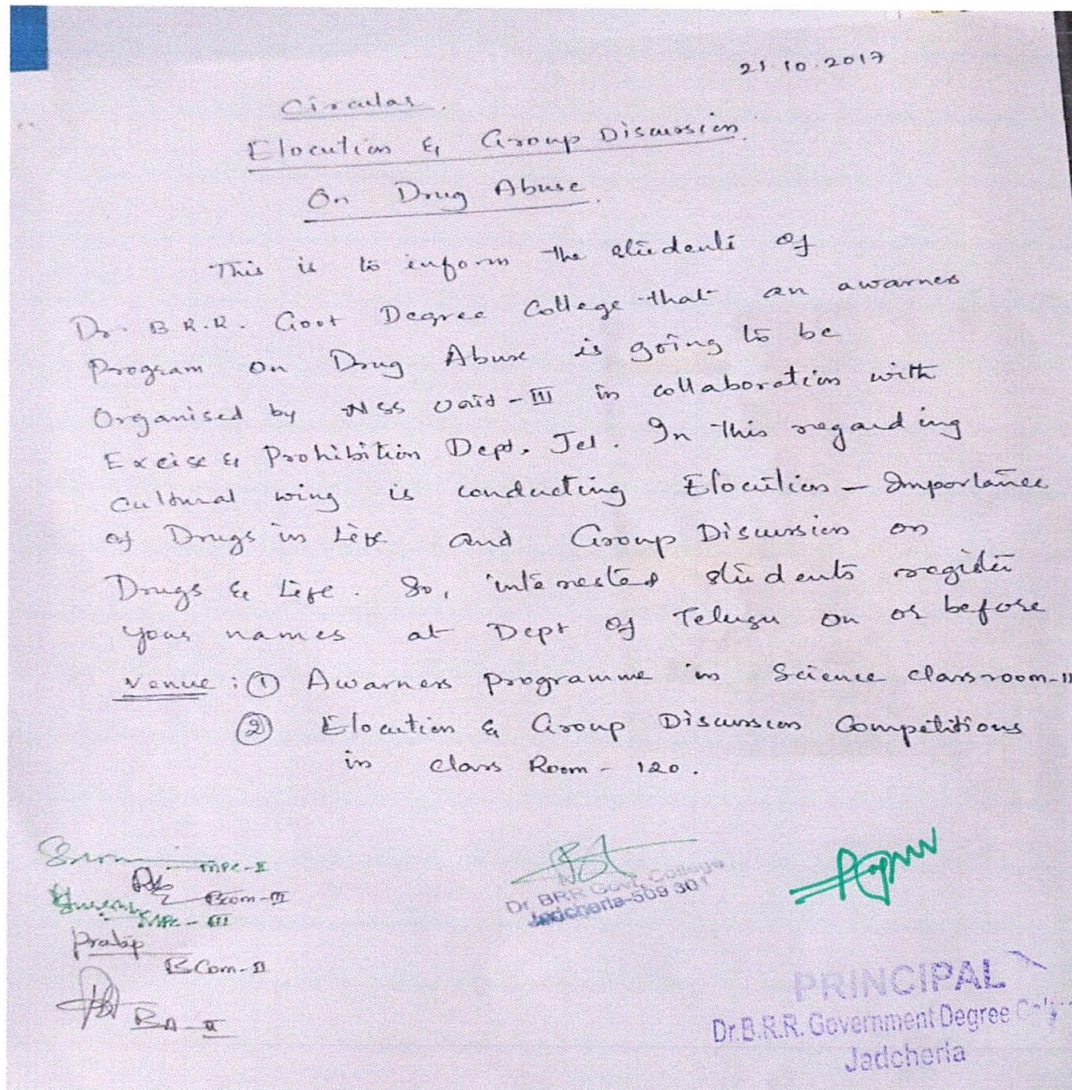 21.10.2017
Circular.
Elocution & Group Discussion.
On Drug Abuse.
This is to inform the students of
Dr. B R.R. Govt Degree College that an awarnes
Program on Drug Abuse is going to be
Organised by NSS Unit-III in collaboration with
Excise & Prohibition Dept, Jcl. In this regarding
Cultural wing is conducting Elocution - Importance
of Drugs in Life and Group Discussion on
Drugs & Life. So, interested students register
your names at Dept of Telugu on or before
Venue : ① Awarnes programme in Science classroom-II
② Elocution & Group Discussion Competitions
in class Room - 120.
MPC-II
Bcom-III
MPC-III
Pratap
B.Com-II
BA-II
Dr BRR Govt. College
Jadcherla-509 301
PRINCIPAL
Dr.B.R.R. Government Degree
Jadcherla